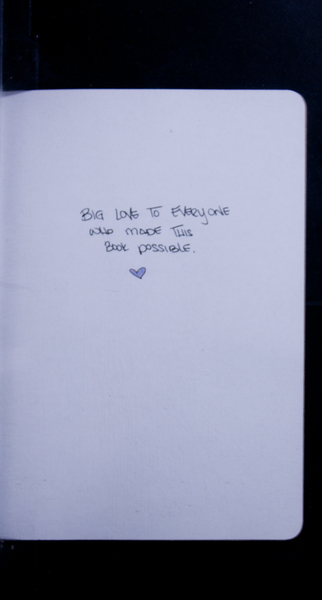 BIG LOVE TO EVERYONE
WHO MADE THIS
BOOK POSSIBLE.